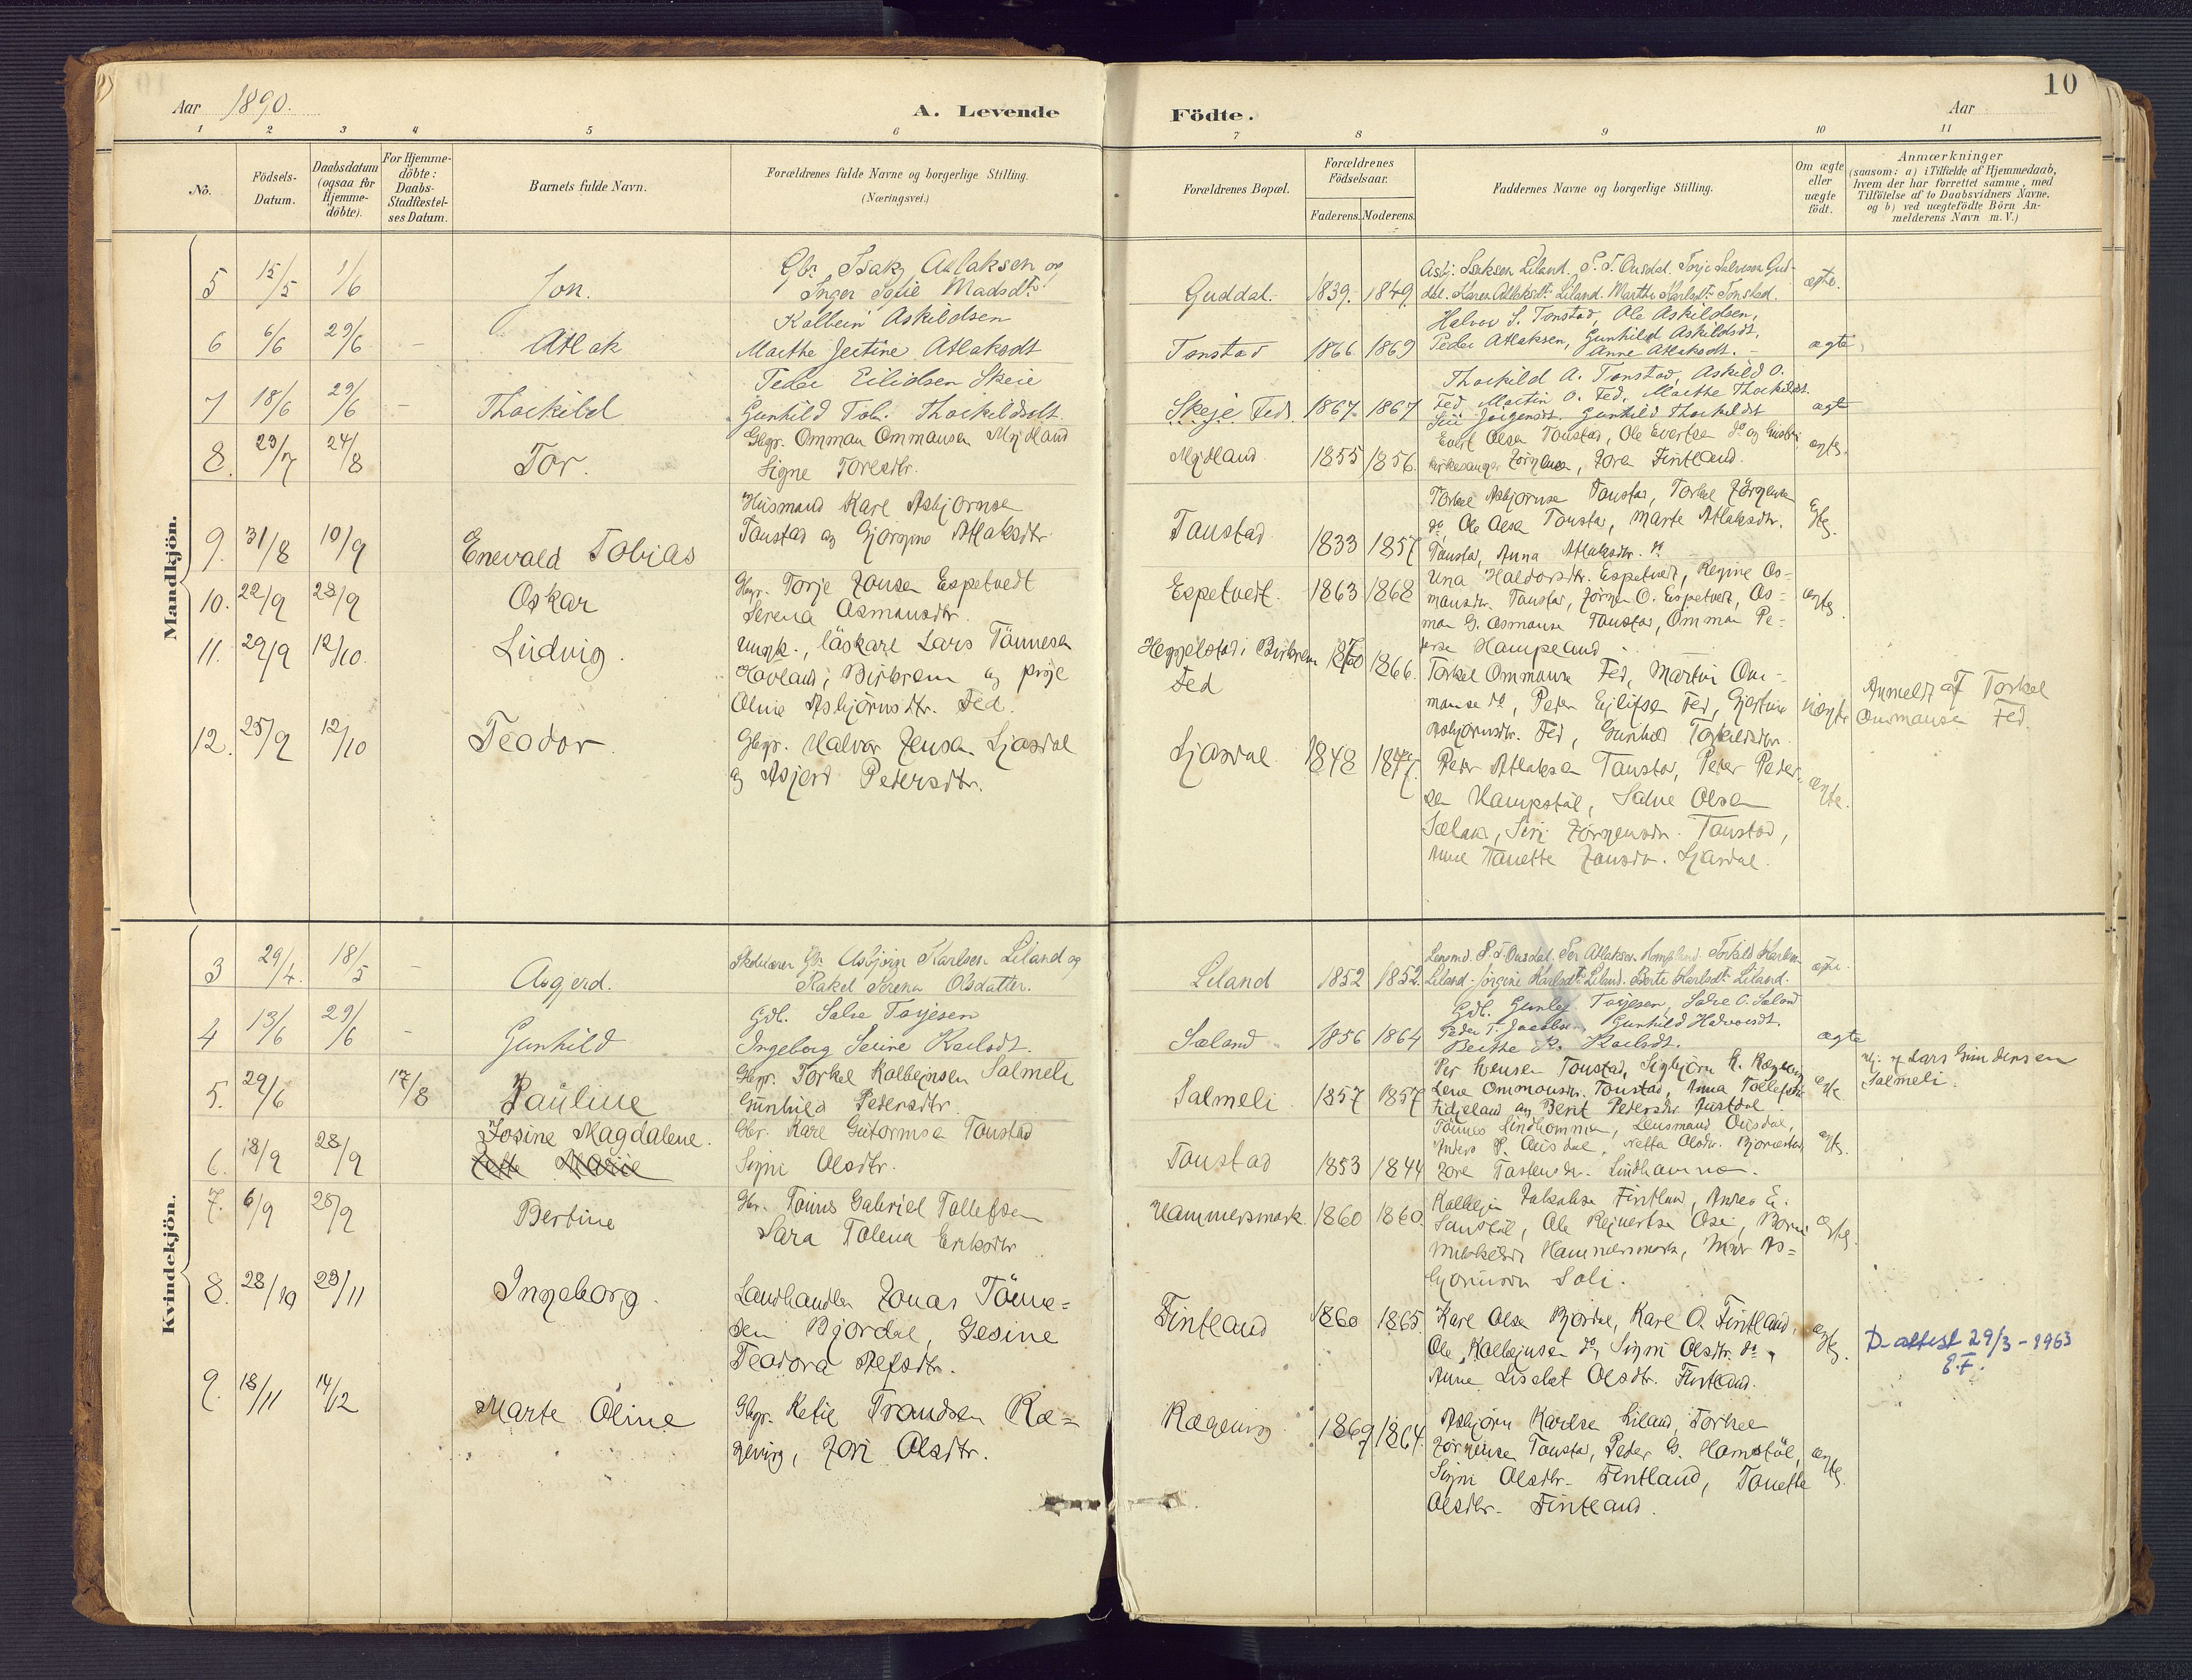 10
Aar 1890.
A. Levende
Födte.
Aar
1 2 3 4 5 6 7 8 9 10 11
No.
Födsels-
Datum.
Daabsdatum
(ogsaa for
Hjemme-
döbte).
For Hjemme-
döbte:
Daabs-
Stadfæstel-
ses Datum.
Barnets fulde Navn.
Forældrenes fulde Navne og borgerlige Stilling.
(Næringsvei.)
Forældrenes Bopæl.
Forældrenes
Födselsaar.
Faderens. Moderens.
Faddernes Navne og borgerlige Stilling.
Om ægte
eller
uægte
födt.
Anmærkninger
(saasom: a) i Tilfælde af Hjemmedaab,
hvem der har forrettet samme, med
Tilföielse af to Daabsvidners Navne.
og b) ved uægtefödte Börn An-
melderens Navn m. V.)
Mandkjön.
5 15/5 1/6 Jon.
Gbr. Isak Atlaksen og
Inger Sofie Madsdtr
Guddal. 1839. 1849.
Asbj. Isaksen Liland. P. T. Ousdal. Torje Salvesen Gud-
dal. Karen Atlaksdtr Liland. Marthe Karlsdtr Tonstad.
ægte.
6 6/6 29/6 - Atlak
Kolbein Askildsen
Marthe Jertine Atlaksdt
Tonstad 1866 1869
Halvor S. Tonstad, Ole Askildsen,
Peder Atlaksen, Gunhild Askildsdt,
Anne Atlaksdt. -
ægte
7 18/6 29/6 - Thorkild
Peder Eilidsen Skeie
Gunhild Tob. Thorkildsdt
Skeje Fed. 1867 1867
Thorkild A. Tonstad, Askild O.
Fed, Martin O. Fed, Marthe Thorkildsdt.
Siri Jörgensdt. Gunhild Thorkildsdt
ægte
8. 23/7 24/8 Tor.
Gbgr. Omman Ommansen Mydland
Signe Toresdtr.
Mydland 1855 1856.
Evert Olsen Tonstad, Ole Evertsen do og
kirkesanger Jörgensen, Jora Fintland.
ægte.
9. 31/8 10/9 Enevald Tobias
Husmand Karl Asbjornsen
Tonstad og Gjörgine Atlaksdtr.
Tonstad 1833 1857
Torkel Asbjornsen Tonstad, Torkel Jörgensen
do, Ole Olsen Tonstad, Marte Atlaksdtr.
Tonstad, Anna Atlaksdtr. do
Egte.
10. 22/9 28/9 Oskar
Gbgr. Torje Jonsen Espetvedt
Serena Osmansdtr.
Espetvedt. 1863 1868
Una Haldorsdtr. Espetvedt, Regine Os-
mansdtr. Tonstad, Jörgen O. Espetvedt, Os-
man G. Osmansen Tonstad, Omman Pe-
dersen Hompland
ægte
11. 29/9 12/10. Ludvig.
ungk., läskarl Lars Tönnesen
Hovland i Birkrem og pige
Oline Asbjörnsdtr. Fed.
Heggelstad i Birkrem
Fed
1860 1866.
Torkel Ommansen Fed, Martin Om-
mansen do, Peter Ejlifsen Fed, Gjertine
Asbjörnsdtr. Fed, Gunhild Torkildsdtr.
uægte
Anmeldt af Torkel
Ommansen Fed.
12. 25/9 12/10 Teodor.
Gbgr. Halvor Jensen Ljosdal
og Asjerd Petersdtr.
Ljosdal 1848 1847.
Peder Atlaksen Tonstad, Peter Peder-
sen Hampstöl, Salve Olsen
Sæland, Siri Jörgensdtr. Tonstad,
Anne Tonette Jonsdtr. Ljosdal.
ægte.
Kvindekjön.
3 29/4. 18/5 - Asgjerd.
Skolelærer Gbr. Asbjörn Karlsen Liland og
Rakel Serena Olsdatter.
Liland 1852 1852.
Lensmd. P. T. Ousdal. Per Atlaksen Hompland. Torkild Karlsen
Liland. Jörgine Karlsdtr Liland. Berte Karlsdtr Liland.
ægte.
4 13/6 29/6 - Gunhild
Gdb. Salve Torjesen
Ingeborg Serine Karlsdt.
Sæland 1856 1864
Gdb. Gunleg Torjesen, Salve O. Sæland
Peder T. Josdal, Gunhild Halvorsdt.
Berthe K. Karlsdt.
ægte
5. 29/6 17/8 Pauline
Gbgr. Torkel Kolbejnsen Salmeli
Gunhild Pedersdtr.
Salmeli 1857 1857
Per Svensen Tonstad, Sigbjörn K. Rægeving
Lene Ommansdtr. Tonstad, Anna Tollefsdtr.
Fidjeland og Berit Pedersdtr Austdal
egte
Hj. af Lars Gundersen
Salmeli.
6. 18/9 28/9 Josine Magdalene.
Gbr. Karl Gutormsen Tonstad
Signi Olsdtr.
Tonstad 1853 1844
Tönnes Lindhommen, Lensmand Ousdal,
Anders P. Ousdal, Netta Olsdtr. Bjornestad,
Jore Tostensdtr. Lindhommen.
egte.
7. 6/9 28/9 Bertine
Gbr. Tönnes Gabriel Tollefsen
Sara Tolena Eriksdtr
Hammersmark. 1860 1860.
Kolbejn Jakobsen Fintland, Andreas E.
Sandstöl, Ole Rejnertsen Osen,
Mikkelsdtr Hammersmark,
Soli.
ægte.
8. 28/10 23/11 Ingeborg.
Landhandler Jonas Tönne-
sen Bjordal, Gesine
Teodora Alefsdtr.
Fintland 1860 1865.
Karl Olsen Bjordal, Karl O. Fintland,
Ole Kolbejnsen do, Signi Olsdtr. do,
Anne Liselet Olsdtr. Fintland.
ægte.
D-attest 29/3-1963
E.F.
9. 18/11 14/12 Marte Oline
Gbgr. Ketil Trondsen Ræ-
geving, Jori Olsdtr.
Rægeving 1869 1864.
Asbjörn Karlsen Liland, Torkel
Jörgensen Tonstad, Peder G. Homstöl,
Signi Olsdtr. Fintland, Tonette
Olsdtr. Fintland.
ægte.